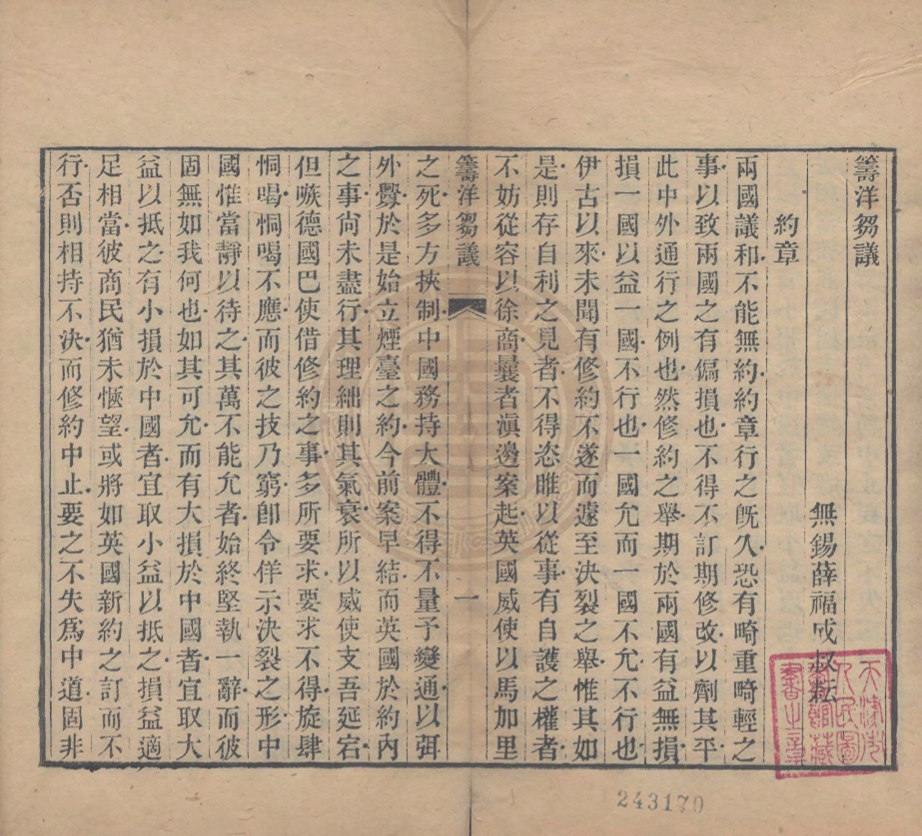 籌洋芻議
無錫薛福成叔耘
約章
兩國議和不能無約約章行之旣久恐有畸重畸輕之
事以致兩國之有偏損也不得不訂期修改以劑其平
此中外通行之例也然修約之舉期於兩國有益無損
損一國以益一國不行也一國允而一國不允不行也
伊古以來未聞有修約不遂而遽至決裂之舉惟其如
是則存自利之見者不得恣睢以從事有自護之權者
不妨從容以徐商曩者滇邊案起英國威使以馬加里
籌洋芻議
一
之死多方挾制中國務持大體不得不量予變通以弭
外釁於是始立煙臺之約今前案早結而英國於約內
之事尚未盡行其理絀則其氣衰所以威使支吾延宕
但嗾德國巴使借修約之事多所要求要求不得旋肆
恫喝恫喝不應而彼之技乃窮卽令佯示決裂之形中
國惟當靜以待之其萬不能允者始終堅執一辭而彼
固無如我何也如其可允而有大損於中國者宜取大
益以抵之有小損於中國者宜取小益以抵之損益適
足相當彼商民猶未愜望或將如英國新約之訂而不
行否則相持不決而修約中止要之不失爲中道固非
天津市
人民圖
書館藏
書之章
243170